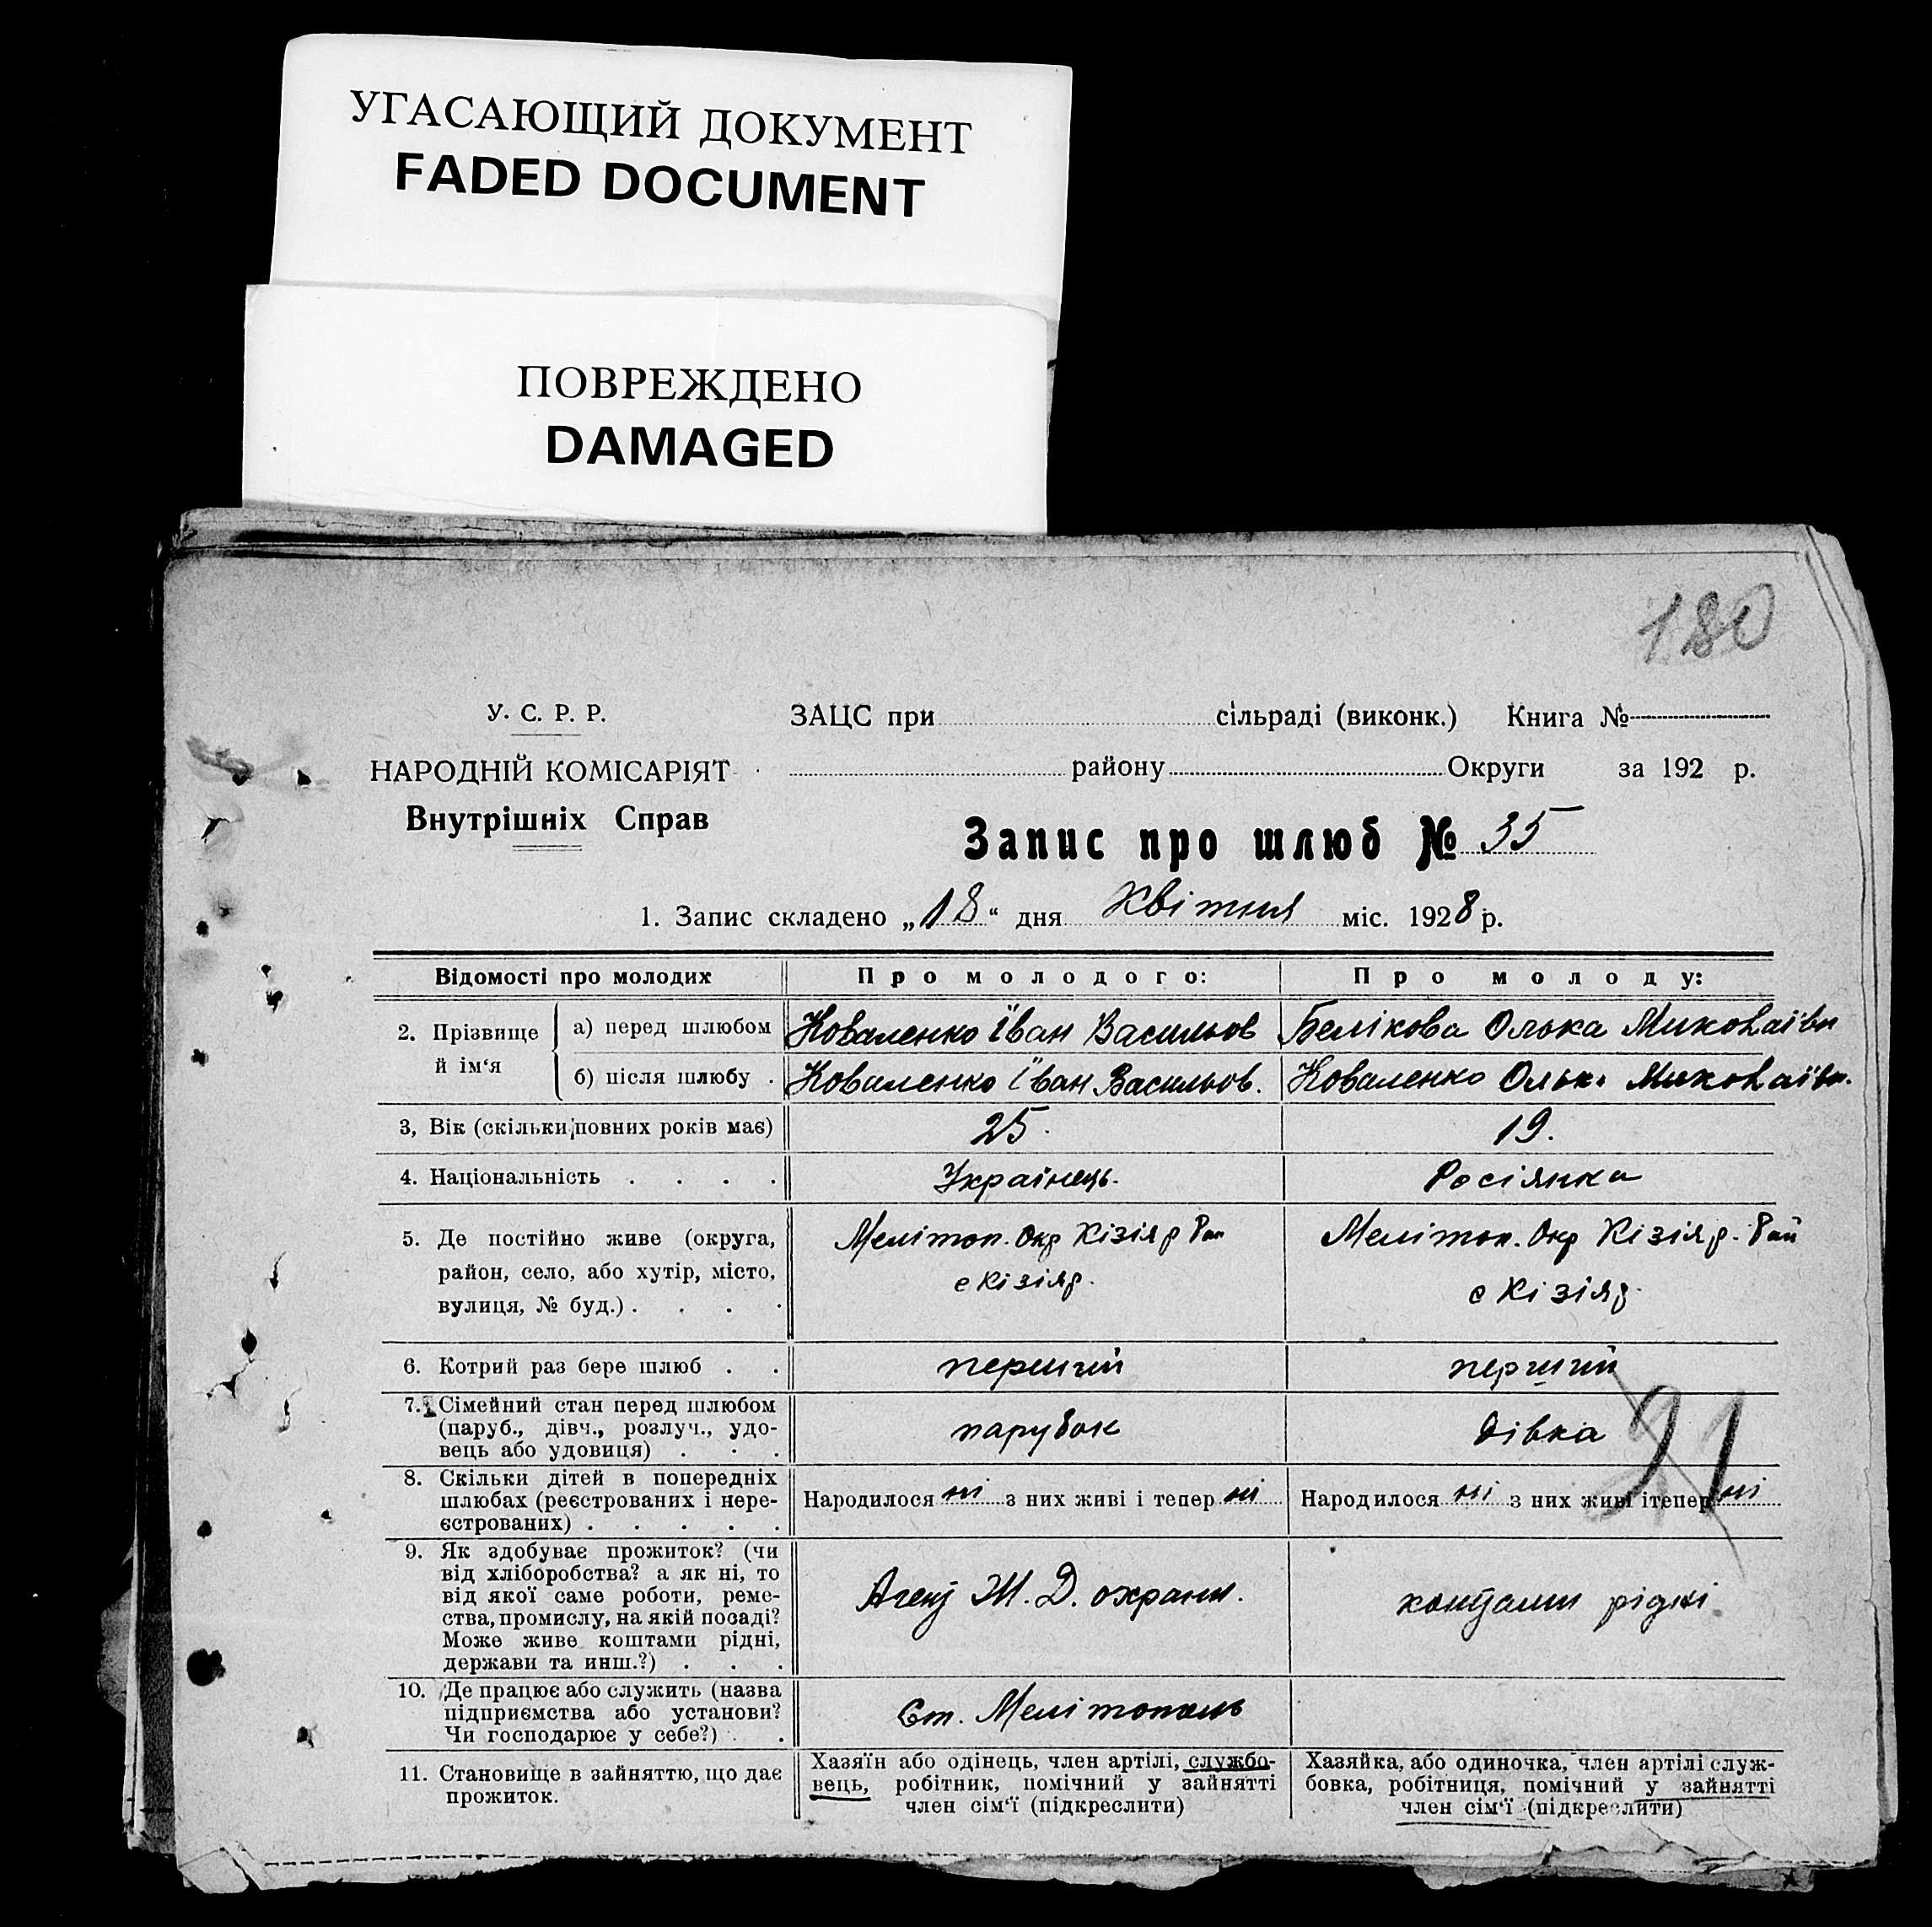 УГАСАЮЩИЙ ДОКУМЕНТ
FADED DOCUMENT
ПОВРЕЖДЕНО
DAMAGED
180
У. С. Р. Р.
НАРОДНІЙ КОМІСАРІЯТ
Внутрішніх Справ
ЗАЦС при сільраді (виконк.) Книга №
району Округи за 192 р.
Запис про шлюб № 35
1. Запис складено „18“ дня Квітня міс. 1928 р.
Відомості про молодих
Про молодого:
Про молоду:
2. Прізвище й ім‘я
а) перед шлюбом
Коваленко Іван Васильов
Белікова Олька Миколаївн
б) після шлюбу .
Коваленко Іван Васильов.
Коваленко Ольк. Миколаївн.
3, Вік (скільки повних років має)
25.
19.
4. Національність . . . .
Українець.
Росіянка
5. Де постійно живе (округа,
район, село, або хутір, місто,
вулиця, № буд.) . . . .
Мелітоп. Окр Кізіяр Рай
с Кізіяр.
Мелітоп. Окр Кізіяр. Рай
с Кізіяр.
6. Котрий раз бере шлюб . .
перший
перший
7. Сімейний стан перед шлюбом
(паруб., дівч., розлуч., удо-
вець або удовиця) . . .
парубок
дівка
91
8. Скільки дітей в попередніх
шлюбах (реєстрованих і нере-
єстрованих) . . . . .
Народилося ні з них живі і тепер ні
Народилося ні з них живі ітепер ні
9. Як здобуває прожиток? (чи
від хліборобства? а як ні, то
від якої саме роботи, реме-
ства, промислу, на якій посаді?
Може живе коштами рідні,
держави та инш.?) . . .
Агент Ж. Д. охрани.
коштами рідні
10. Де працює або служить (назва
підприємства або установи?
Чи господарює у себе?) . .
Ст. Мелітополь
11. Становище в зайняттю, що дає
прожиток.
Хазяїн або одінець, член артілі, службо-
вець, робітник, помічний у зайнятті
член сім‘ї (підкреслити)
Хазяйка, або одиночка, член артілі служ-
бовка, робітниця, помічний у зайнятті
член сім‘ї (підкреслити)